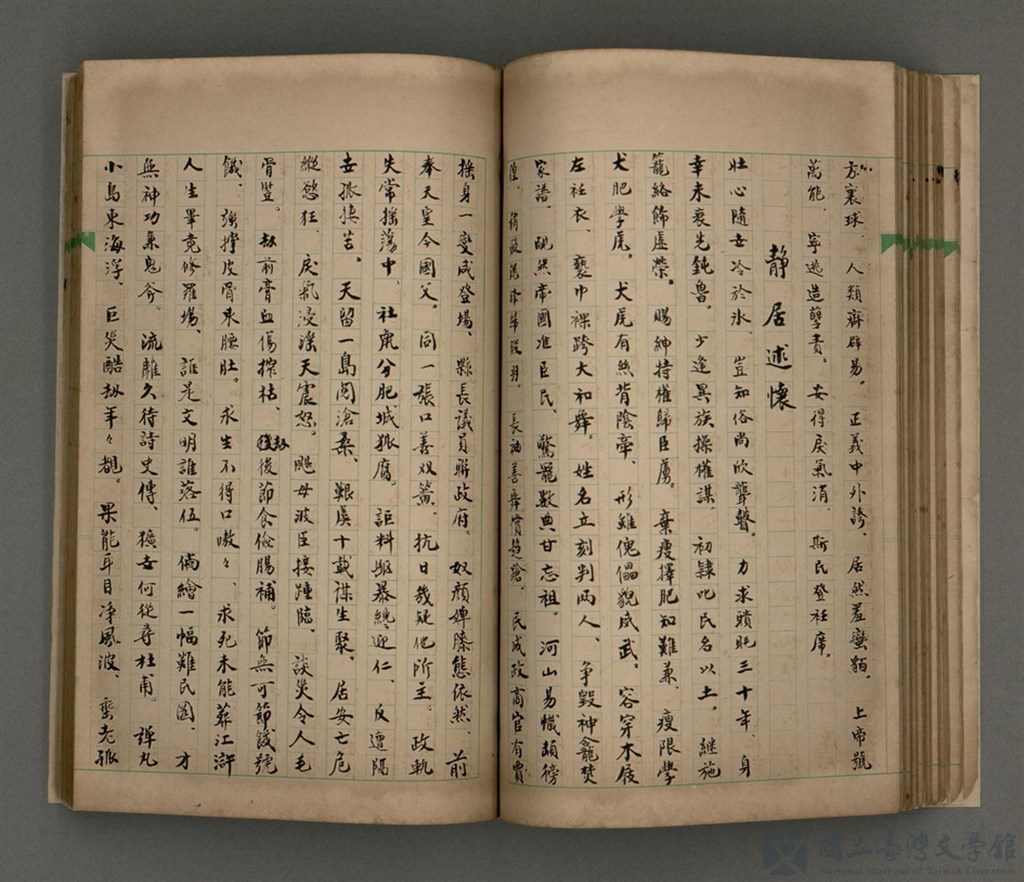 方寰球、人類齊辟易。正義中外誇、居然羞蠻貊。上帝號
萬能、寧逃造孽責。安得戾氣消、斯民登衽席。
靜居述懷
壯心隨世冷於冰、豈知俗尚欣聾瞽。力求蹟毗三十年、身
幸未衰先鈍魯。少逢異族操權謀、初隸吡民名以土。繼施
籠絡飾虛榮。賜紳特權歸臣虜。棄瘦擇肥知難兼、瘦限學
犬肥學虎。犬虎有絲背陰牽、形雖傀儡貌威武。容穿木屐
左衽衣、褻巾裸跨大和舞。姓名立刻判兩人、爭毀神龕焚
家譜。靦然帝國准臣民、驚罷數典甘忘祖。河山易幟頡徬
長袖善舞賓趨蹌。民成政商官有賈
搖身一變咸登場、縣長議員聯政府。奴顏婢膝態依然、前
奉天皇今國父。同一張口善双簧、抗日幾疑他阶主。政軌
失常搖蕩中、社鼠分肥城狐腐。詎料驅暴總迎仁、反遭隔
世孤換苦。天留一島閱滄桑、艱虞十載謀生聚。居安亡危
縱慾狂、戾氣浸淫天震怒。颶母波臣接踵臨、談災令人毛
骨豎。劫前膏血傷搾枯、劫後節食儉腸補。節無可節餓號
饑、強撐皮骨束腰肚。求生不得口嗷々、求死未能葬江滸
人生畢竟修羅場、誰是文明誰落伍。倘繪一幅難民圖、才
無神功乘鬼斧。流離久待詩史傳、獷世何從尋杜甫。彈丸
小島東海浮、巨災酷劫年々覩。果能耳目净風波、蛮老孤
國立臺灣文學館
National Museum of Taiwan Literature